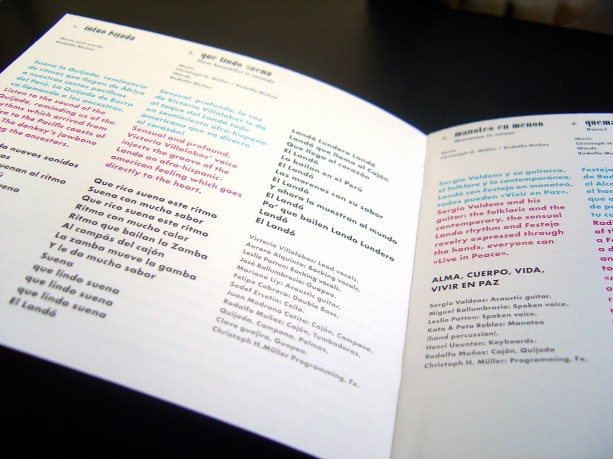 1. intro kijada
Music and words
Rodolfo Muñoz
Suena la Quijada, reminencia
de ritmos que llegan de África
a nuestras costas pacíficas
del Perú. La Quijada de Burro
va llamando a los ancestros.
Listen to the sound of the
Quijada, reminding us of the
rhythms which arrived from
to the Pacific coasts of
the donkey's jawbone
the ancestors.
nuevos sonidos
al ritmo
que lindo suena
How beautiful it sounds
Music
Christoph H. Müller / Rodolfo Muñoz
Words
Rodolfo Muñoz
Sensual, profundo, la voz
de Victoria Villalobos le da
al toque del Landó todo
un sentimiento afro-hispano-
americano que va directo
al corazón!
Sensual and profound,
Victoria Villalobos' voice
injects the groove of the
Lando an afro-hispanic-
american feeling which goes
directly to the heart.
Que rico suena este ritmo
Suena con mucho sabor
Que rico suena este ritmo
Ritmo con mucho color
Ritmo que bailan la Zamba
Al compás del cajón
La zamba mueve la gamba
Y le da mucho sabor
Suena
que lindo suena
que lindo suena
que lindo suena
El Landó
Landó Lundero Landó
Landó que llama al Cajón
Que llega al corazón
El Landó
Lo bailan en el Perú
El Landó
Los morenos con su sabor
El Landó
Y ahora lo muestran al mundo
El Landó
Pa' que bailen Lando Lundero
Landó
El Landó
Victoria Villalobos: Lead vocals.
Aurora Alquinta: Backing vocals.
Leslie Patten: Backing vocals.
José Ballumbrosio: Guapeo.
Mariano Liy: Acoustic guitar.
Felipe Cabrera: Double Bass.
Sedef Ercetin: Cello.
Juan Medrano Cotito: Cajón.
Rodolfo Muñoz: Cajón, Tumbadoras,
Quijada, Campana, Palmas,
Clave guajira, Guapeo.
Christoph H.Müller Programming, Fx.
manoteo en menor
Manoteo in minor
Music
Christoph H. Müller / Rodolfo Muñoz
Sergio Valdeos y su guitarra,
el folklore y lo contemporáneo,
el Landó con Festejo en manoteo,
todos pueden «Vivir en Paz».
Sergio Valdeos and his
guitar: the folkloric and the
contemporary, the sensual
Lando rhythm and Festejo
revelry expressed through
the hands, everyone can
«Live in Peace».
ALMA, CUERPO, VIDA,
VIVIR EN PAZ
Sergio Valdeos: Acoustic guitar.
Miguel Ballumbrosio: Spoken voice.
Leslie Patten: Spoken voice.
Kata & Peta Robles: Manoteo
(hand percussion).
Henri Ueunten: Keyboards.
Rodolfo Muñoz: Cajón, Quijada
Christoph H. Müller Programming, Fx.
Music
Words
Rodolfo